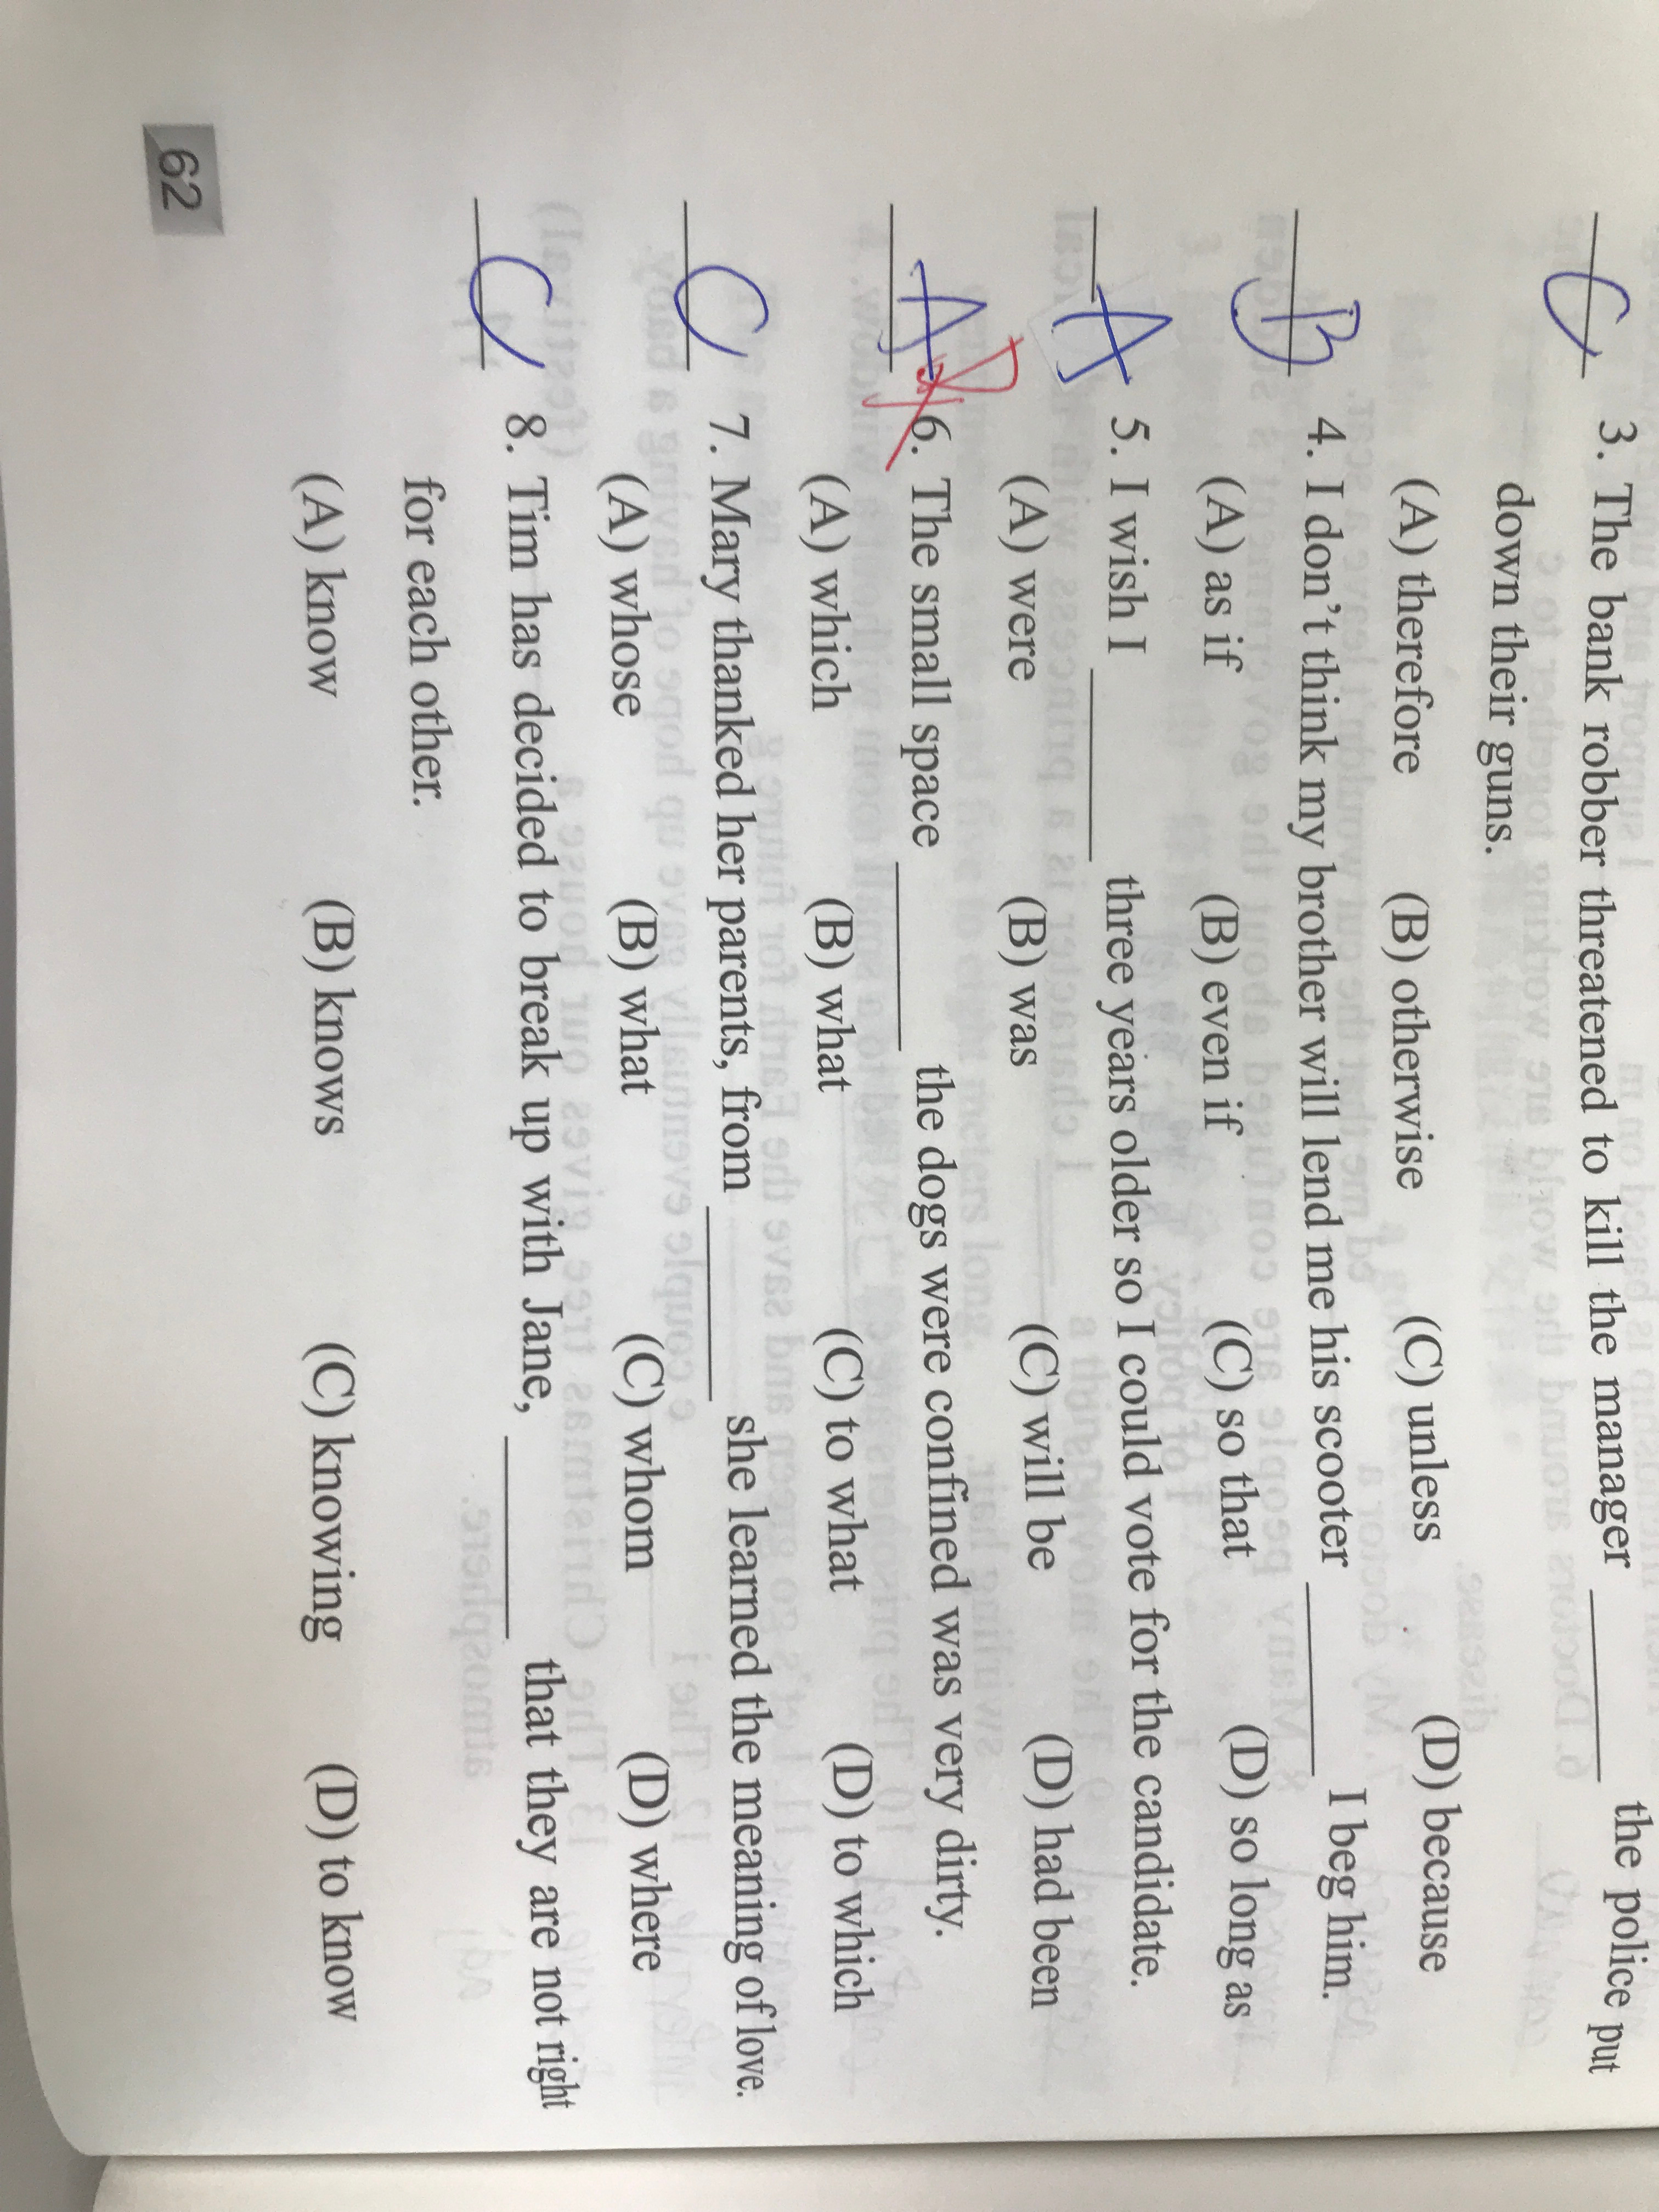 C 3. The bank robber threatened to kill the manager ______ the police put
down their guns.
(A) therefore (B) otherwise (C) unless (D) because
B 4. I don't think my brother will lend me his scooter ______ I beg him.
(A) as if (B) even if (C) so that (D) so long as
A 5. I wish I ______ three years older so I could vote for the candidate.
(A) were (B) was (C) will be (D) had been
A D 6. The small space ______ the dogs were confined was very dirty.
(A) which (B) what (C) to what (D) to which
C 7. Mary thanked her parents, from ______ she learned the meaning of love.
(A) whose (B) what (C) whom (D) where
C 8. Tim has decided to break up with Jane, ______ that they are not right
for each other.
(A) know (B) knows (C) knowing (D) to know
62